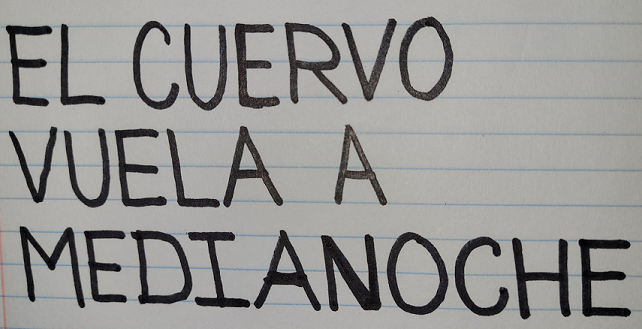 EL CUERVO
VUELA A
MEDIANOCHE